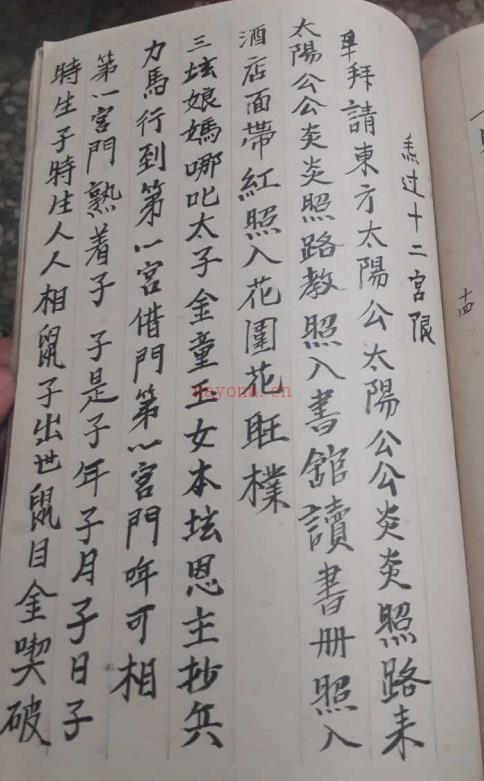 羔过十二宮限
拜請東方太陽公太陽公公炎炎照路来
太陽公公炎炎照路教照入書舘讀書册照入
酒店面帶紅照入花園花旺樸
三坛娘媽哪叱太子金童玉女本坛恩主抄兵
力馬行到第一宮借門第一宮門年可相
第一宮門熟着子 子是子年子月子日子
時生子時生人人相鼠子出世鼠目金喫破
十四
nayona.cn